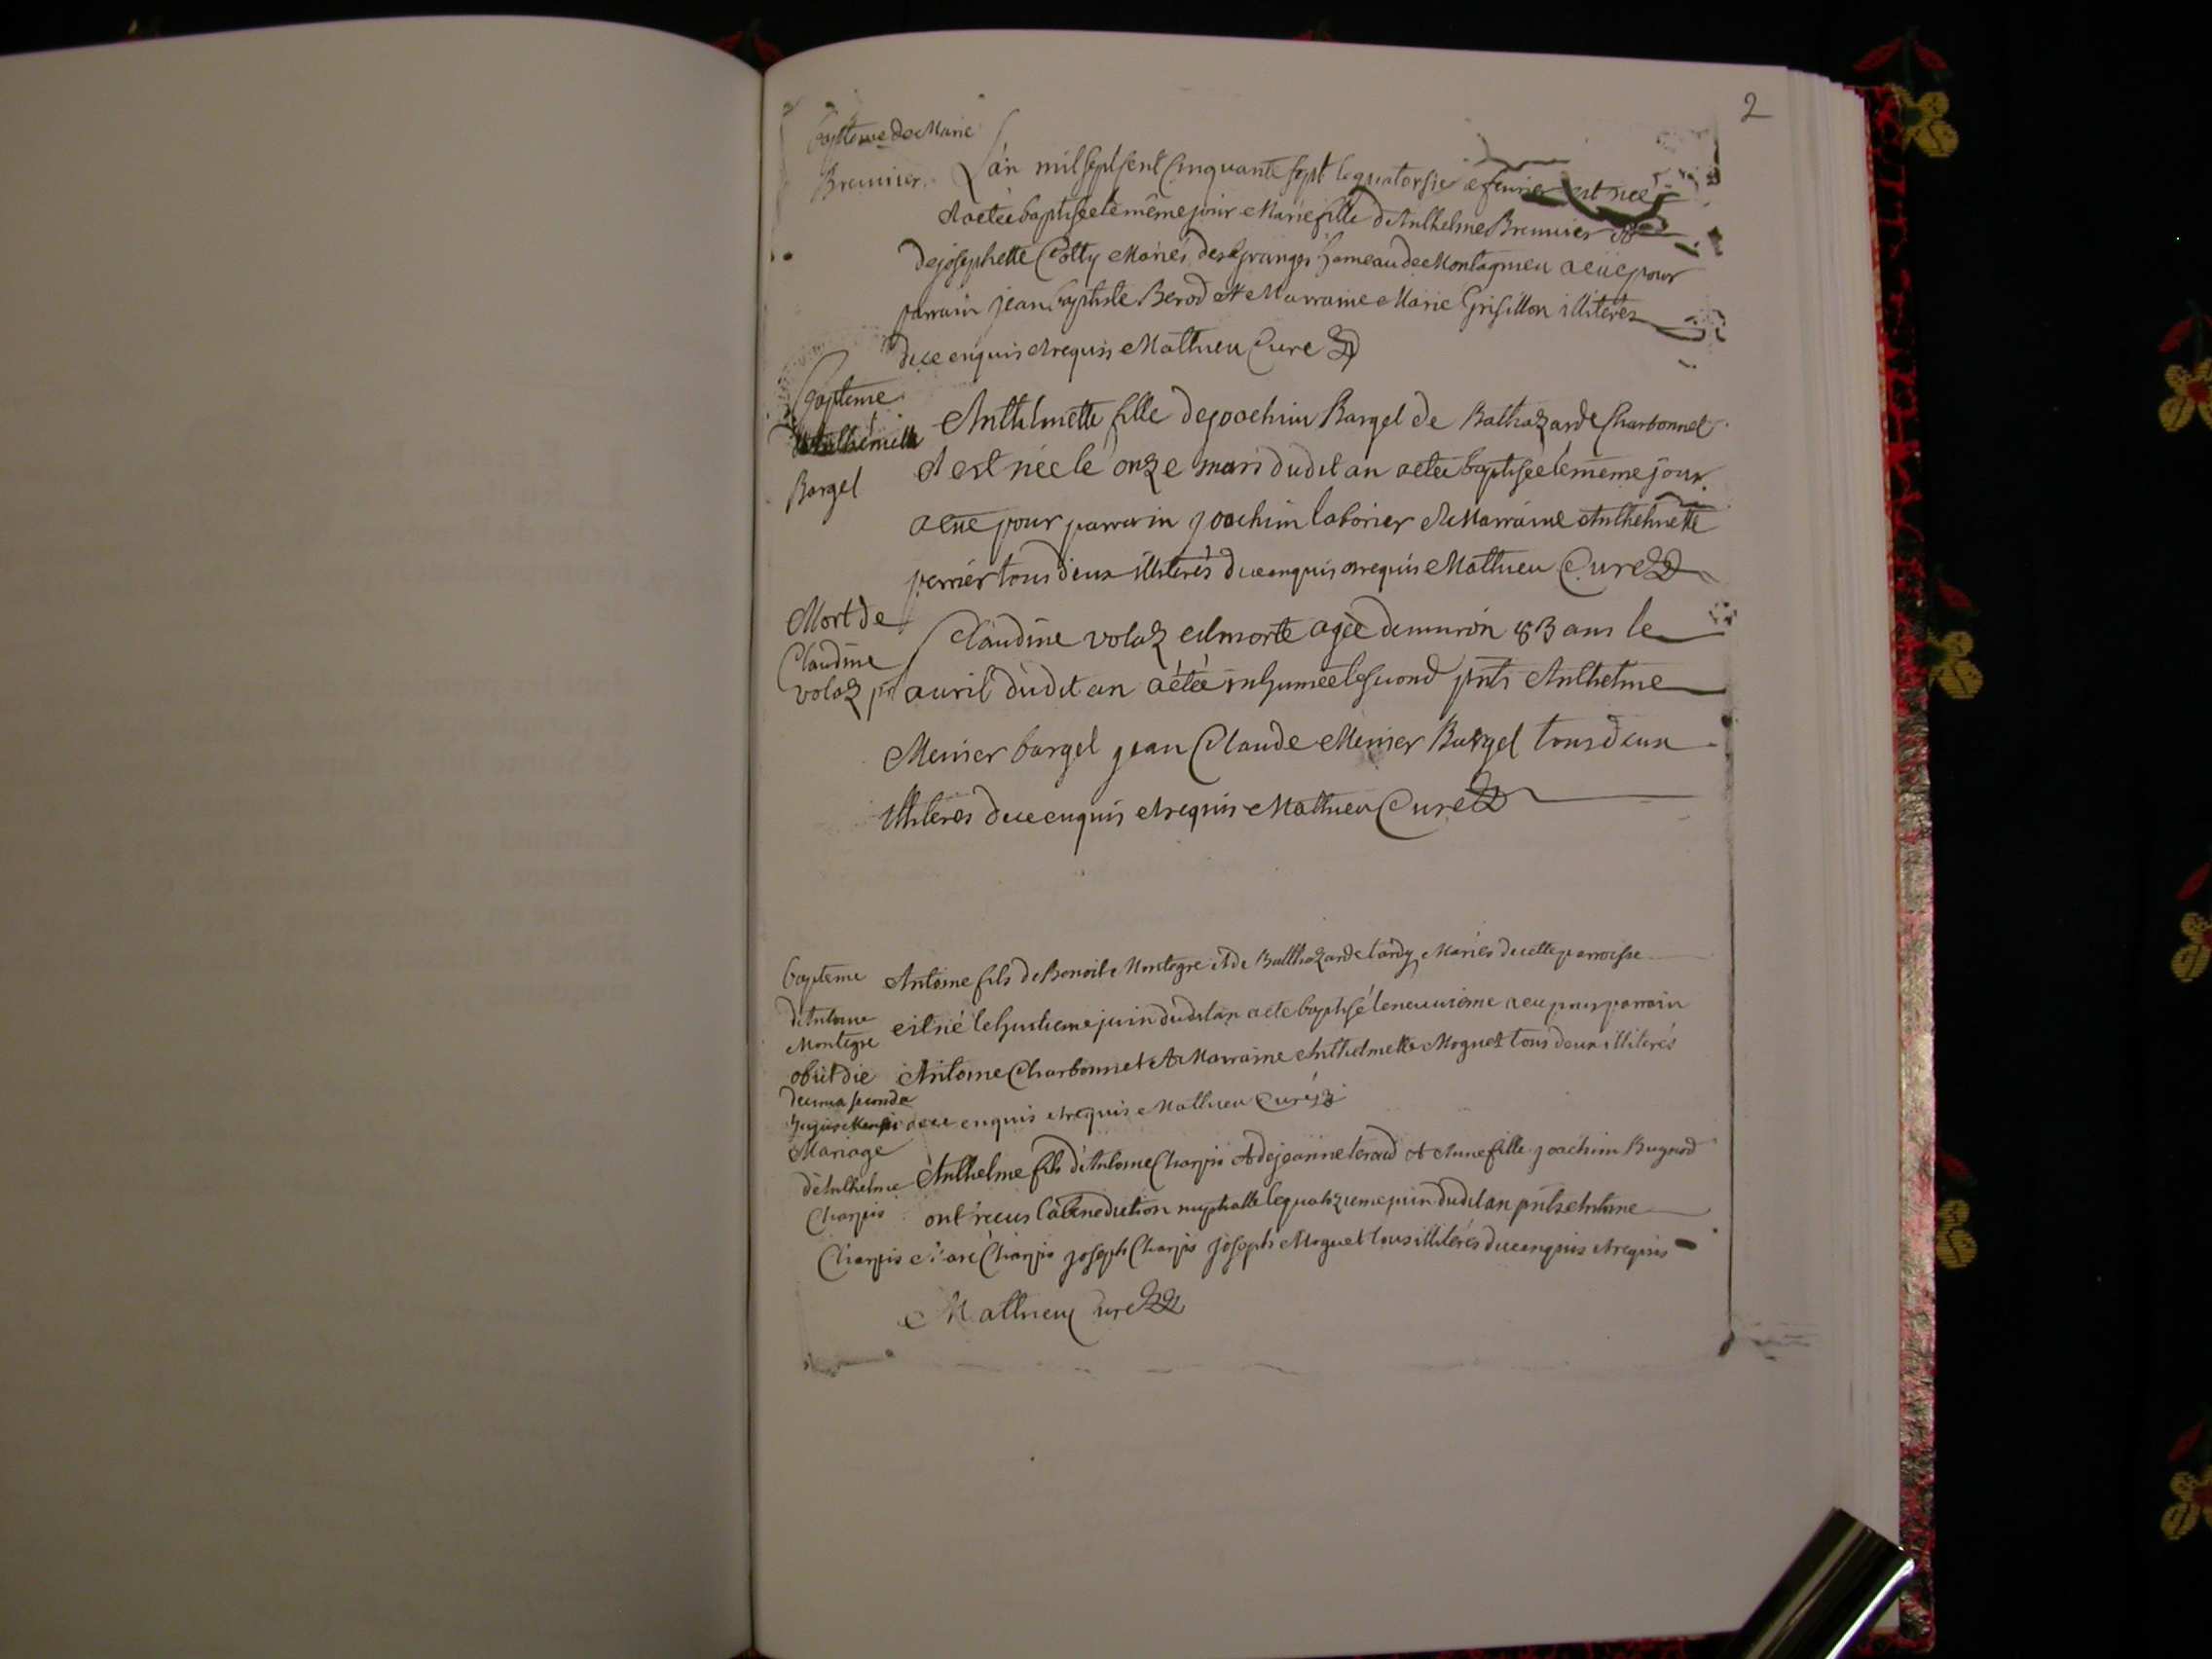 2
bapteme de Marie
Bremier. L'an mil sept sent cinquante sept le quatorsie fevrier est nee
et a etée baptisée le même jour Marie fille d'Anthelme Bremier et
de josephette Cotty Mariés des granges hameau de Montagnieu a eue pour
parrain jean baptiste Berod et Marraine Marie Grisillon illiteres
de ce enquis et requis Mathieu Cure
Bapteme
Bargel
Anthelmette fille de joachim Bargel de Balthazarde Charbonnet
et est née le onze mars dudit an a etée baptisée le même jour
a eue pour parrain joachim laborier et Marraine Anthelmette
perrier tous deux illiterés de ce enquis et requis Mathieu Curé
Mort de
Claudine
volaz
Claudine volaz est morte agée denviron 83 ans le
avril dudit an a étée inhumée le second pnts Anthelme
Menier bargel jean Claude Menier Bargel tous deux
illiteres de ce enquis et requis Mathieu Curé
bapteme
d'Antoine
Montegre
obiit die
decima secunda
Antoine fils de Benoit Montegre et de Balthazarde tardy Mariés de cette parroisse
est né le huitieme juin dudit an a ete baptisé le neuvieme a eu pour parrain
Antoine Charbonnet et Marraine Anthelmette Moguet tous deux illiterés
de ce enquis et requis Mathieu Curé
Mariage
d'Anthelme
Charpis
Anthelme fils d'Antoine Charpis et de jeanne teraud et Anne fille joachim Bugnod
ont recus la benediction nuptialle le quatorzieme juin dudit an pnts Antoine
Charpis Marc Charpis joseph Charpis joseph Moguet tous illiterés de ce enquis et requis
Mathieu Curé